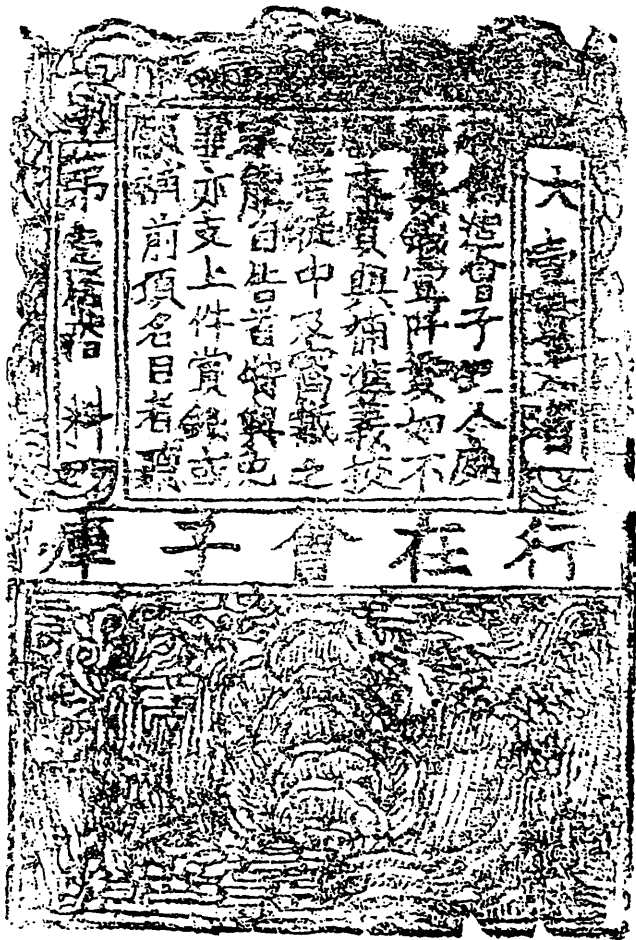 大壹
偽造會子犯人處
賞錢壹阡貫如不
支賞與補進義校
若徒中及窩藏之
能自告首特與免
亦支上件賞錢或
補前項名目者聽
第料
行在會子庫